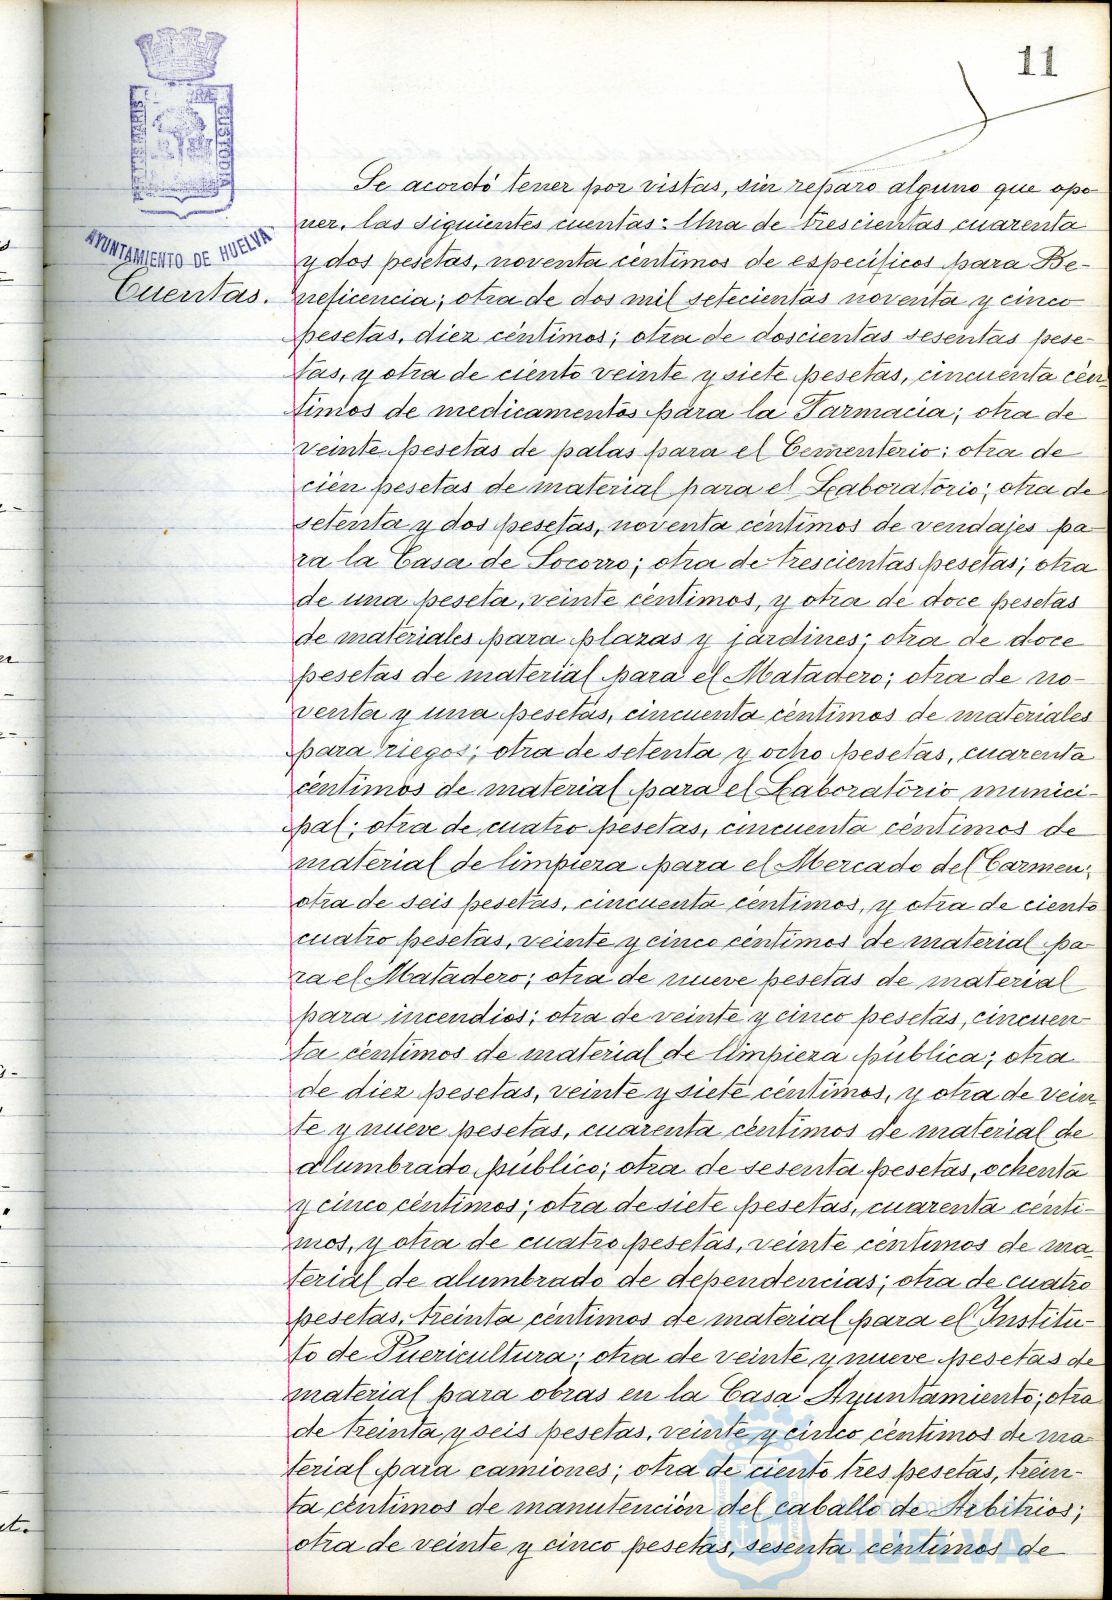 11
PORTUS MARIS ET TERRÆ CUSTODIA
AYUNTAMIENTO DE HUELVA
Cuentas.
Se acordó tener por vistas, sin reparo alguno que opo-
ner, las siguientes cuentas: Una de trescientas cuarenta
y dos pesetas, noventa céntimos de específicos para Be-
neficencia; otra de dos mil setecientas noventa y cinco
pesetas, diez céntimos; otra de doscientas sesentas pese-
tas, y otra de ciento veinte y siete pesetas, cincuenta cén-
timos de medicamentos para la Farmacia; otra de
veinte pesetas de palas para el Cementerio; otra de
cien pesetas de material para el Laboratorio; otra de
setenta y dos pesetas, noventa céntimos de vendajes pa-
ra la Casa de Socorro; otra de trescientas pesetas; otra
de una peseta, veinte céntimos, y otra de doce pesetas
de materiales para plazas y jardines; otra de doce
pesetas de material para el Matadero; otra de no-
venta y una pesetas, cincuenta céntimos de materiales
para riegos; otra de setenta y ocho pesetas, cuarenta
céntimos de material para el Laboratorio munici-
pal; otra de cuatro pesetas, cincuenta céntimos de
material de limpieza para el Mercado del Carmen;
otra de seis pesetas, cincuenta céntimos, y otra de ciento
cuatro pesetas, veinte y cinco céntimos de material pa-
ra el Matadero; otra de nueve pesetas de material
para incendios; otra de veinte y cinco pesetas, cincuen-
ta céntimos de material de limpieza pública; otra
de diez pesetas, veinte y siete céntimos, y otra de vein-
te y nueve pesetas, cuarenta céntimos de material de
alumbrado público; otra de sesenta pesetas, ochenta
y cinco céntimos; otra de siete pesetas, cuarenta cénti-
mos, y otra de cuatro pesetas, veinte céntimos de ma-
terial de alumbrado de dependencias; otra de cuatro
pesetas, treinta céntimos de material para el Institu-
to de Puericultura; otra de veinte y nueve pesetas de
material para obras en la Casa Ayuntamiento; otra
de treinta y seis pesetas, veinte y cinco céntimos de ma-
terial para camiones; otra de ciento tres pesetas, trein-
ta céntimos de manutención del caballo de Arbitrios;
otra de veinte y cinco pesetas, sesenta céntimos de
HUELVA